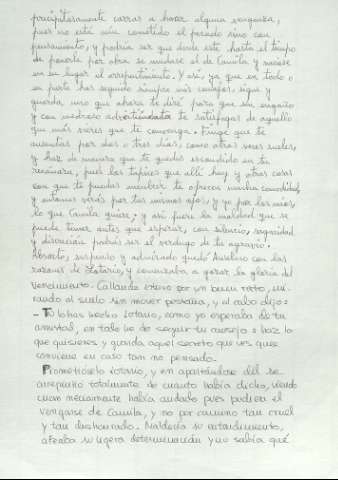 precipitosamente corras a hacer alguna venganza,
pues no está aún cometido el pecado sino con
pensamiento, y podría ser que desde éste hasta el tiempo
de ponerle por obra se mudase el de Camila y naciese
en su lugar el arrepentimiento. Y así, ya que en todo o
en parte has seguido siempre mis consejos, sigue y
guarda uno que ahora te diré para que sin engaño
y con medroso advertimiento te satisfagas de aquello
que más vieres que te convenga. Finge que te
ausentas por dos o tres días, como otras veces sueles,
y haz de manera que te quedes escondido en tu
recámara, pues los tapices que allí hay y otras cosas
con que te puedas encubrir te ofrecen mucha comodidad,
y entonces verás por tus mismos ojos, y yo por los míos,
lo que Camila quiere; y si fuere la maldad que se
puede temer antes que esperar, con silencio, sagacidad
y discreción podrás ser el verdugo de tu agravio.
Absorto, suspenso y admirado quedó Anselmo con las
razones de Lotario, y comenzaba a gozar la gloria del
vencimiento. Callando estuvo por un buen rato, mi-
rando al suelo sin mover pestaña, y al cabo dijo:
- Tú lo has hecho Lotario, como yo esperaba de tu
amistad, en todo he de seguir tu consejo: haz lo
que quisieres y guarda aquel secreto que ves que
conviene en caso tan no pensado.
Prometióselo Lotario, y en apartándose del se
arrepintió totalmente de cuanto había dicho, viendo
cuan neciamente había andado pues pudiera él
vengarse de Camila, y no por camino tan cruel
y tan deshonrado. Maldecía su entendimiento,
afeaba su ligera determinación y no sabía qué